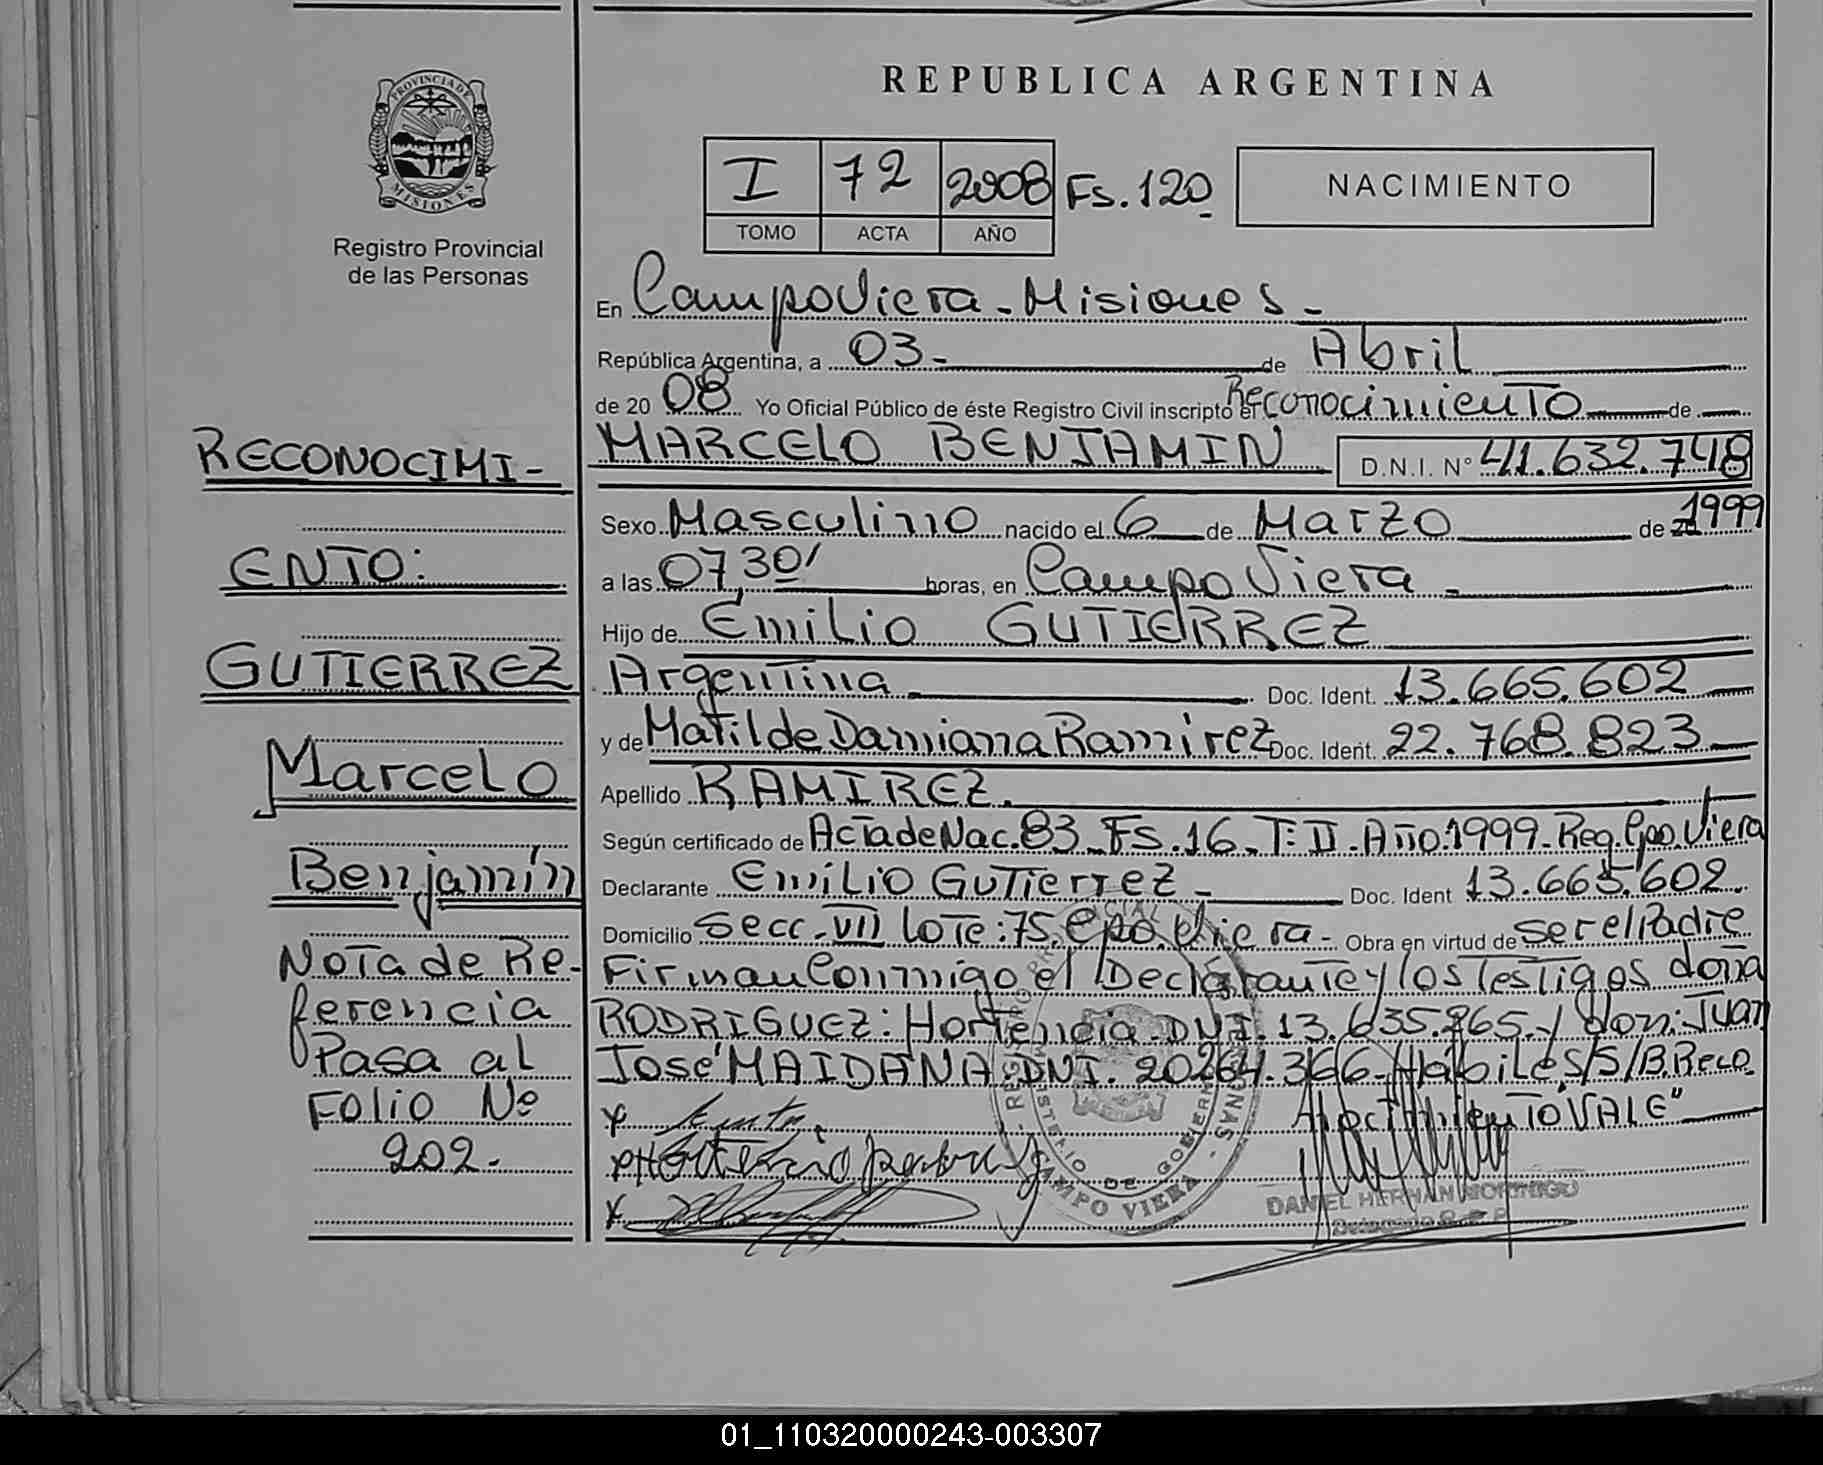 REPUBLICA ARGENTINA
PROVINCIA DE
MISIONES
Registro Provincial
de las Personas
I 72 2008 Fs. 120
TOMO ACTA AÑO
NACIMIENTO
En CampoViera - Misiones -
República Argentina, a 03 - de Abril
de 20 08 Yo Oficial Público de éste Registro Civil inscripto el Reconocimiento de
MARCELO BENJAMIN D.N.I. N° 41.632.748
Sexo Masculino nacido el 6 de Marzo de 1999
a las 07,30' horas, en Campo Viera -
Hijo de Emilio GUTIERREZ
Argentina Doc. Ident. 13.665.602
y de Matilde Damiana Ramirez Doc. Ident. 22.768.823
Apellido RAMIREZ.
Según certificado de Acta de Nac. 83 - Fs. 16 - T: II. Año: 1999 - Reg. Cpo. Viera
Declarante Emilio Gutierrez - Doc. Ident 13.665.602
Domicilio Secc. VII Lote: 75. Cpo. Viera - Obra en virtud de ser el Padre
Firman Conmigo el Declarante y los Testigos doña
RODRIGUEZ: Hortencia DNI. 13.635.265. y don: Juan
José MAIDANA DNI. 20264.366 - Hábiles/S/B.Reco
nocimiento VALE"
RECONOCIMI-
ENTO:
GUTIERREZ
Marcelo
Benjamín
Nota de Re-
ferencia
Pasa al
Folio Nº
202.-
CAMPO VIERA
MINISTERIO DE GOBIERNO
DANIEL HERNAN MORINIGO
Delegado R. P. P.
01_110320000243-003307